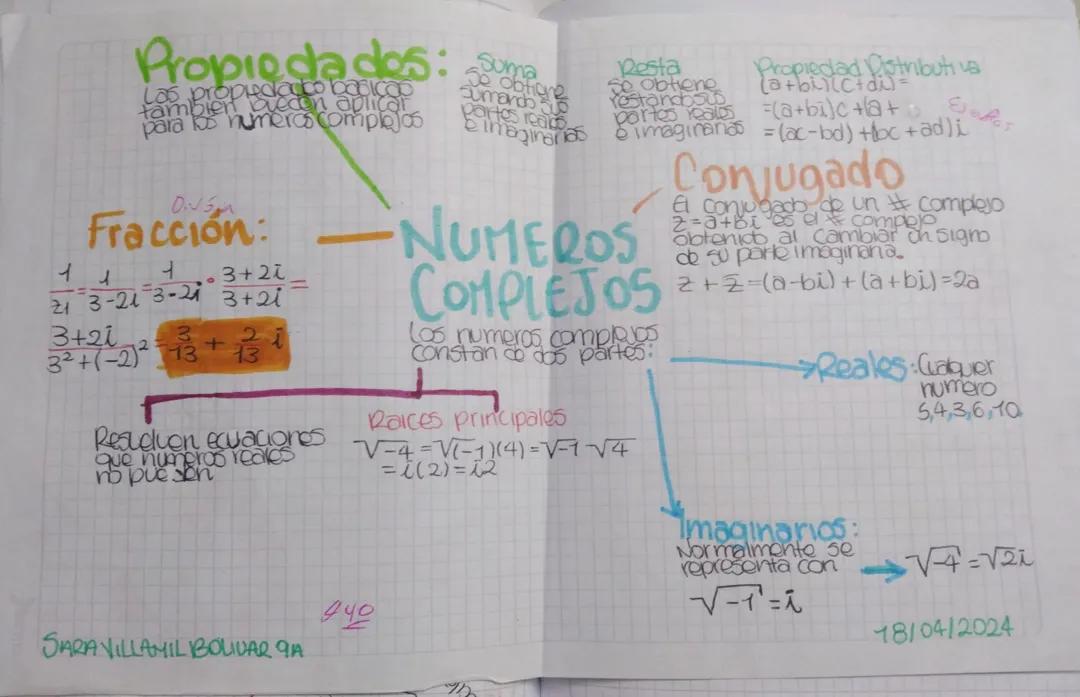 Propiedades:
Las propiedades basicas
tambien pueden aplicar
para los numeros complejos
Suma
se obtiene
sumando sus
partes reales
e imaginarias
Resta
se obtiene
restando sus
partes reales
e imaginarias
Propiedad Distributiva
(a+bi)(c+di)=
=(a+bi)c+(a+
=(ac-bd)+(bc+ad)i
Conjugado
El conjugado de un # complejo
z=a+bi es el # complejo
obtenido al cambiar un signo
de su parte imaginaria.
z+z̅=(a-bi)+(a+bi)=2a
División
Fracción:
1/z1 = 1/3-2i = 1/3-2i · 3+2i/3+2i =
3+2i/3²+(-2)² = 3/13 + 2/13 i
NUMEROS
COMPLEJOS
Los numeros complejos
constan de dos partes:
Reales: Cualquier
numero
5,4,3,6,10
Resuelven ecuaciones
que numeros reales
no pueden
Raices principales
√-4=√(-1)(4)=√-1 √4
=i(2)=i2
Imaginarios:
Normalmente se
representa con
√-1=i
√-4=√2i
SARA VILLAMIL BOLIVAR 9A
18/04/2024